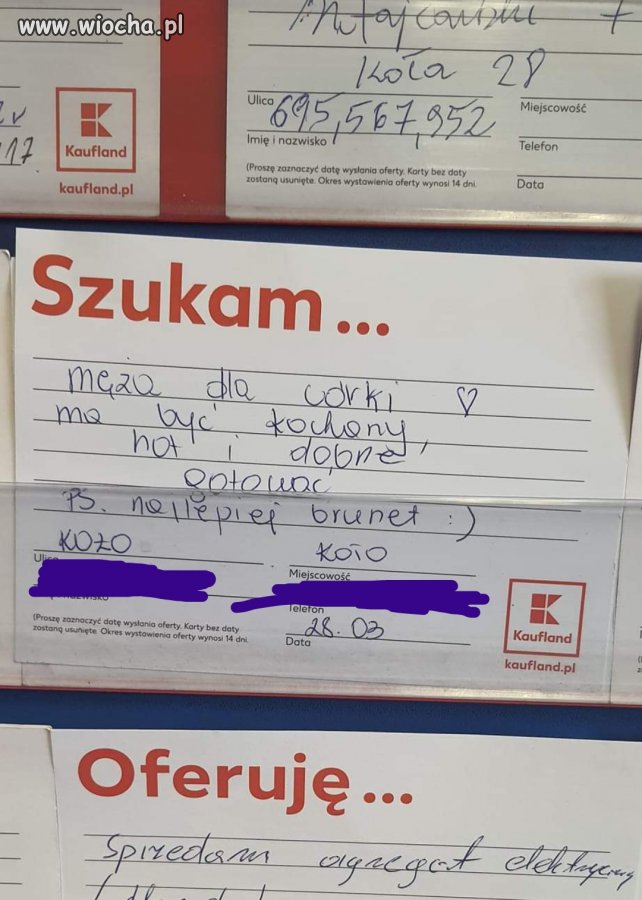 www.wiocha.pl
Koła 28
Ulica 695,567,952
Miejscowość
Imię i nazwisko
Telefon
(Proszę zaznaczyć datę wysłania oferty. Karty bez daty
zostaną usunięte. Okres wystawienia oferty wynosi 14 dni.
Data
17
Kaufland
kaufland.pl
Szukam...
męża dla córki ♡
ma być kochany,
hot i dobrze
gotować
PS. najlepiej brunet :)
KOŁO
Miejscowość
Telefon
(Proszę zaznaczyć datę wysłania oferty. Karty bez daty
zostaną usunięte. Okres wystawienia oferty wynosi 14 dni.
28.03
Data
Kaufland
kaufland.pl
Oferuję...
Sprzedam agregat elektryczny